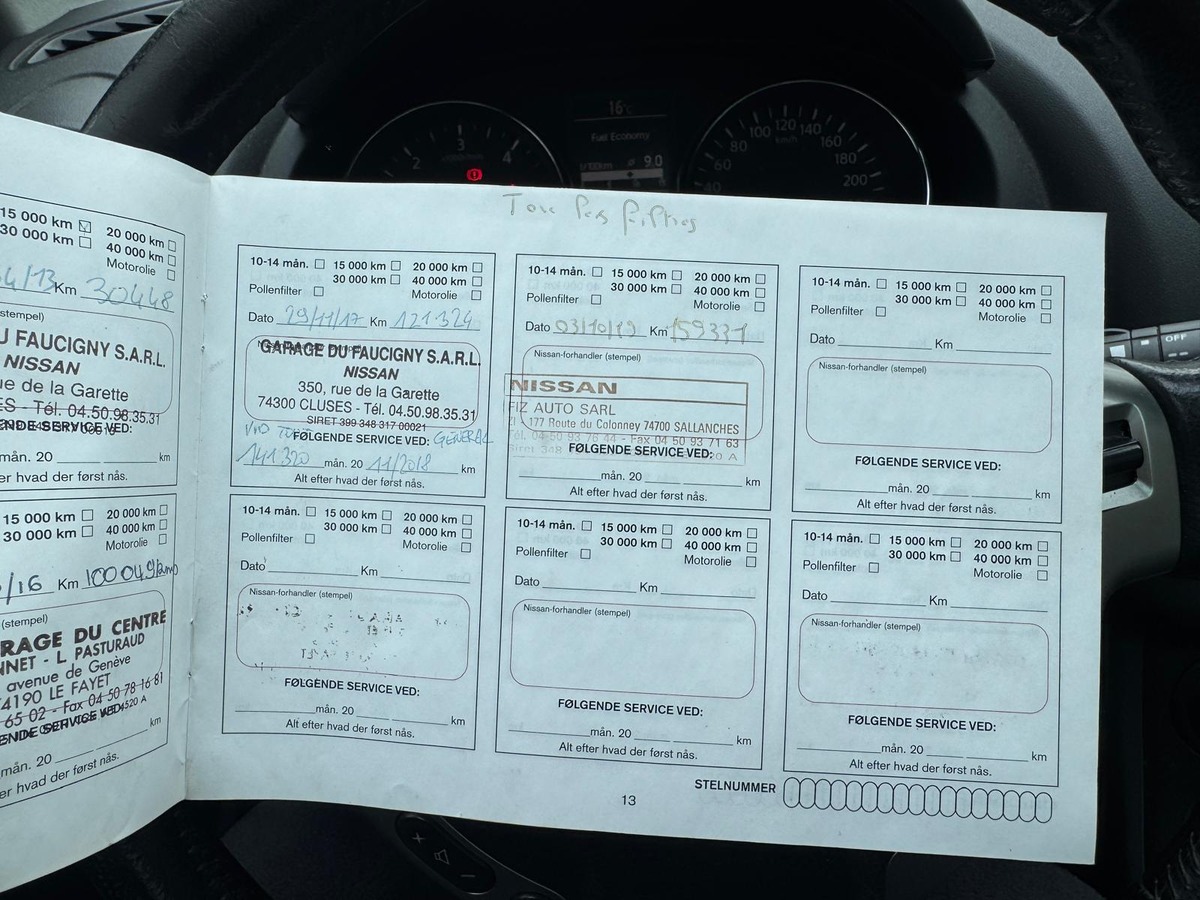 16°C
Fuel Economy
l/100km 9.0
2 3 4
40 60 80 100 120 140 160 180 200
km/h
OFF
15 000 km 20 000 km
30 000 km 40 000 km
Motorolie
04/13 Km 30448
(stempel)
U FAUCIGNY S.A.R.L.
NISSAN
ue de la Garette
ES - Tél. 04.50.98.35.31
ENDE SERVICE VED:
mån. 20 km
er hvad der først nås.
15 000 km 20 000 km
30 000 km 40 000 km
Motorolie
/16 Km 100049
(stempel)
RAGE DU CENTRE
NNET - L PASTURAUD
avenue de Genève
74190 LE FAYET
65 02 - Fax 04 50 78 16 81
ENDE SERVICE VED:
mån. 20 km
er hvad der først nås.
Tous les filtres
10-14 mån. 15 000 km 20 000 km
30 000 km 40 000 km
Pollenfilter Motorolie
Dato 29/11/17 Km 121.324
GARAGE DU FAUCIGNY S.A.R.L.
NISSAN
350, rue de la Garette
74300 CLUSES - Tél. 04.50.98.35.31
SIRET 399 348 317 00021
FØLGENDE SERVICE VED: GENERAL
141.320 mån. 20 11/2018 km
Alt efter hvad der først nås.
10-14 mån. 15 000 km 20 000 km
30 000 km 40 000 km
Pollenfilter Motorolie
Dato 03/10/19 Km 159331
Nissan-forhandler (stempel)
NISSAN
FIZ AUTO SARL
177 Route du Colonney 74700 SALLANCHES
Tél. 04 50 93 76 44 - Fax 04 50 93 71 63
FØLGENDE SERVICE VED:
mån. 20 km
Alt efter hvad der først nås.
10-14 mån. 15 000 km 20 000 km
30 000 km 40 000 km
Pollenfilter Motorolie
Dato Km
Nissan-forhandler (stempel)
FØLGENDE SERVICE VED:
mån. 20 km
Alt efter hvad der først nås.
10-14 mån. 15 000 km 20 000 km
30 000 km 40 000 km
Pollenfilter Motorolie
Dato Km
Nissan-forhandler (stempel)
FØLGENDE SERVICE VED:
mån. 20 km
Alt efter hvad der først nås.
10-14 mån. 15 000 km 20 000 km
30 000 km 40 000 km
Pollenfilter Motorolie
Dato Km
Nissan-forhandler (stempel)
FØLGENDE SERVICE VED:
mån. 20 km
Alt efter hvad der først nås.
10-14 mån. 15 000 km 20 000 km
30 000 km 40 000 km
Pollenfilter Motorolie
Dato Km
Nissan-forhandler (stempel)
FØLGENDE SERVICE VED:
mån. 20 km
Alt efter hvad der først nås.
STELNUMMER
13